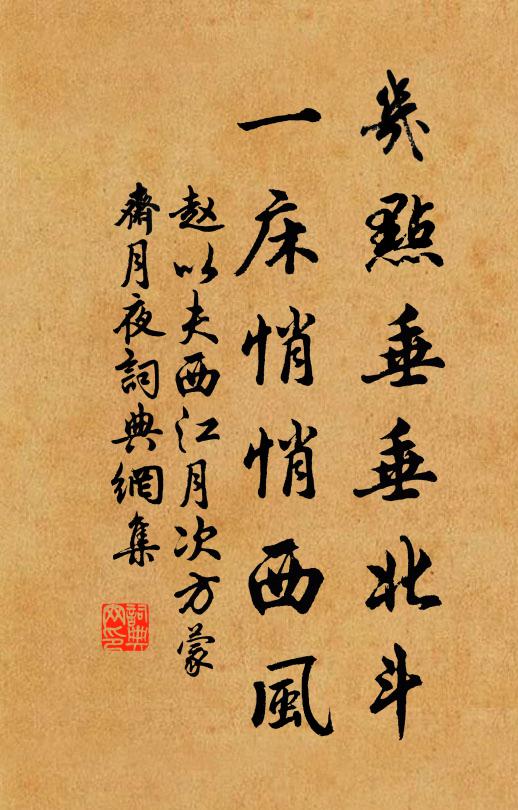 幾點垂垂北斗
一床悄悄西風
赵以夫西江月次方蒙
齋月夜詞典網集
詞典
网印